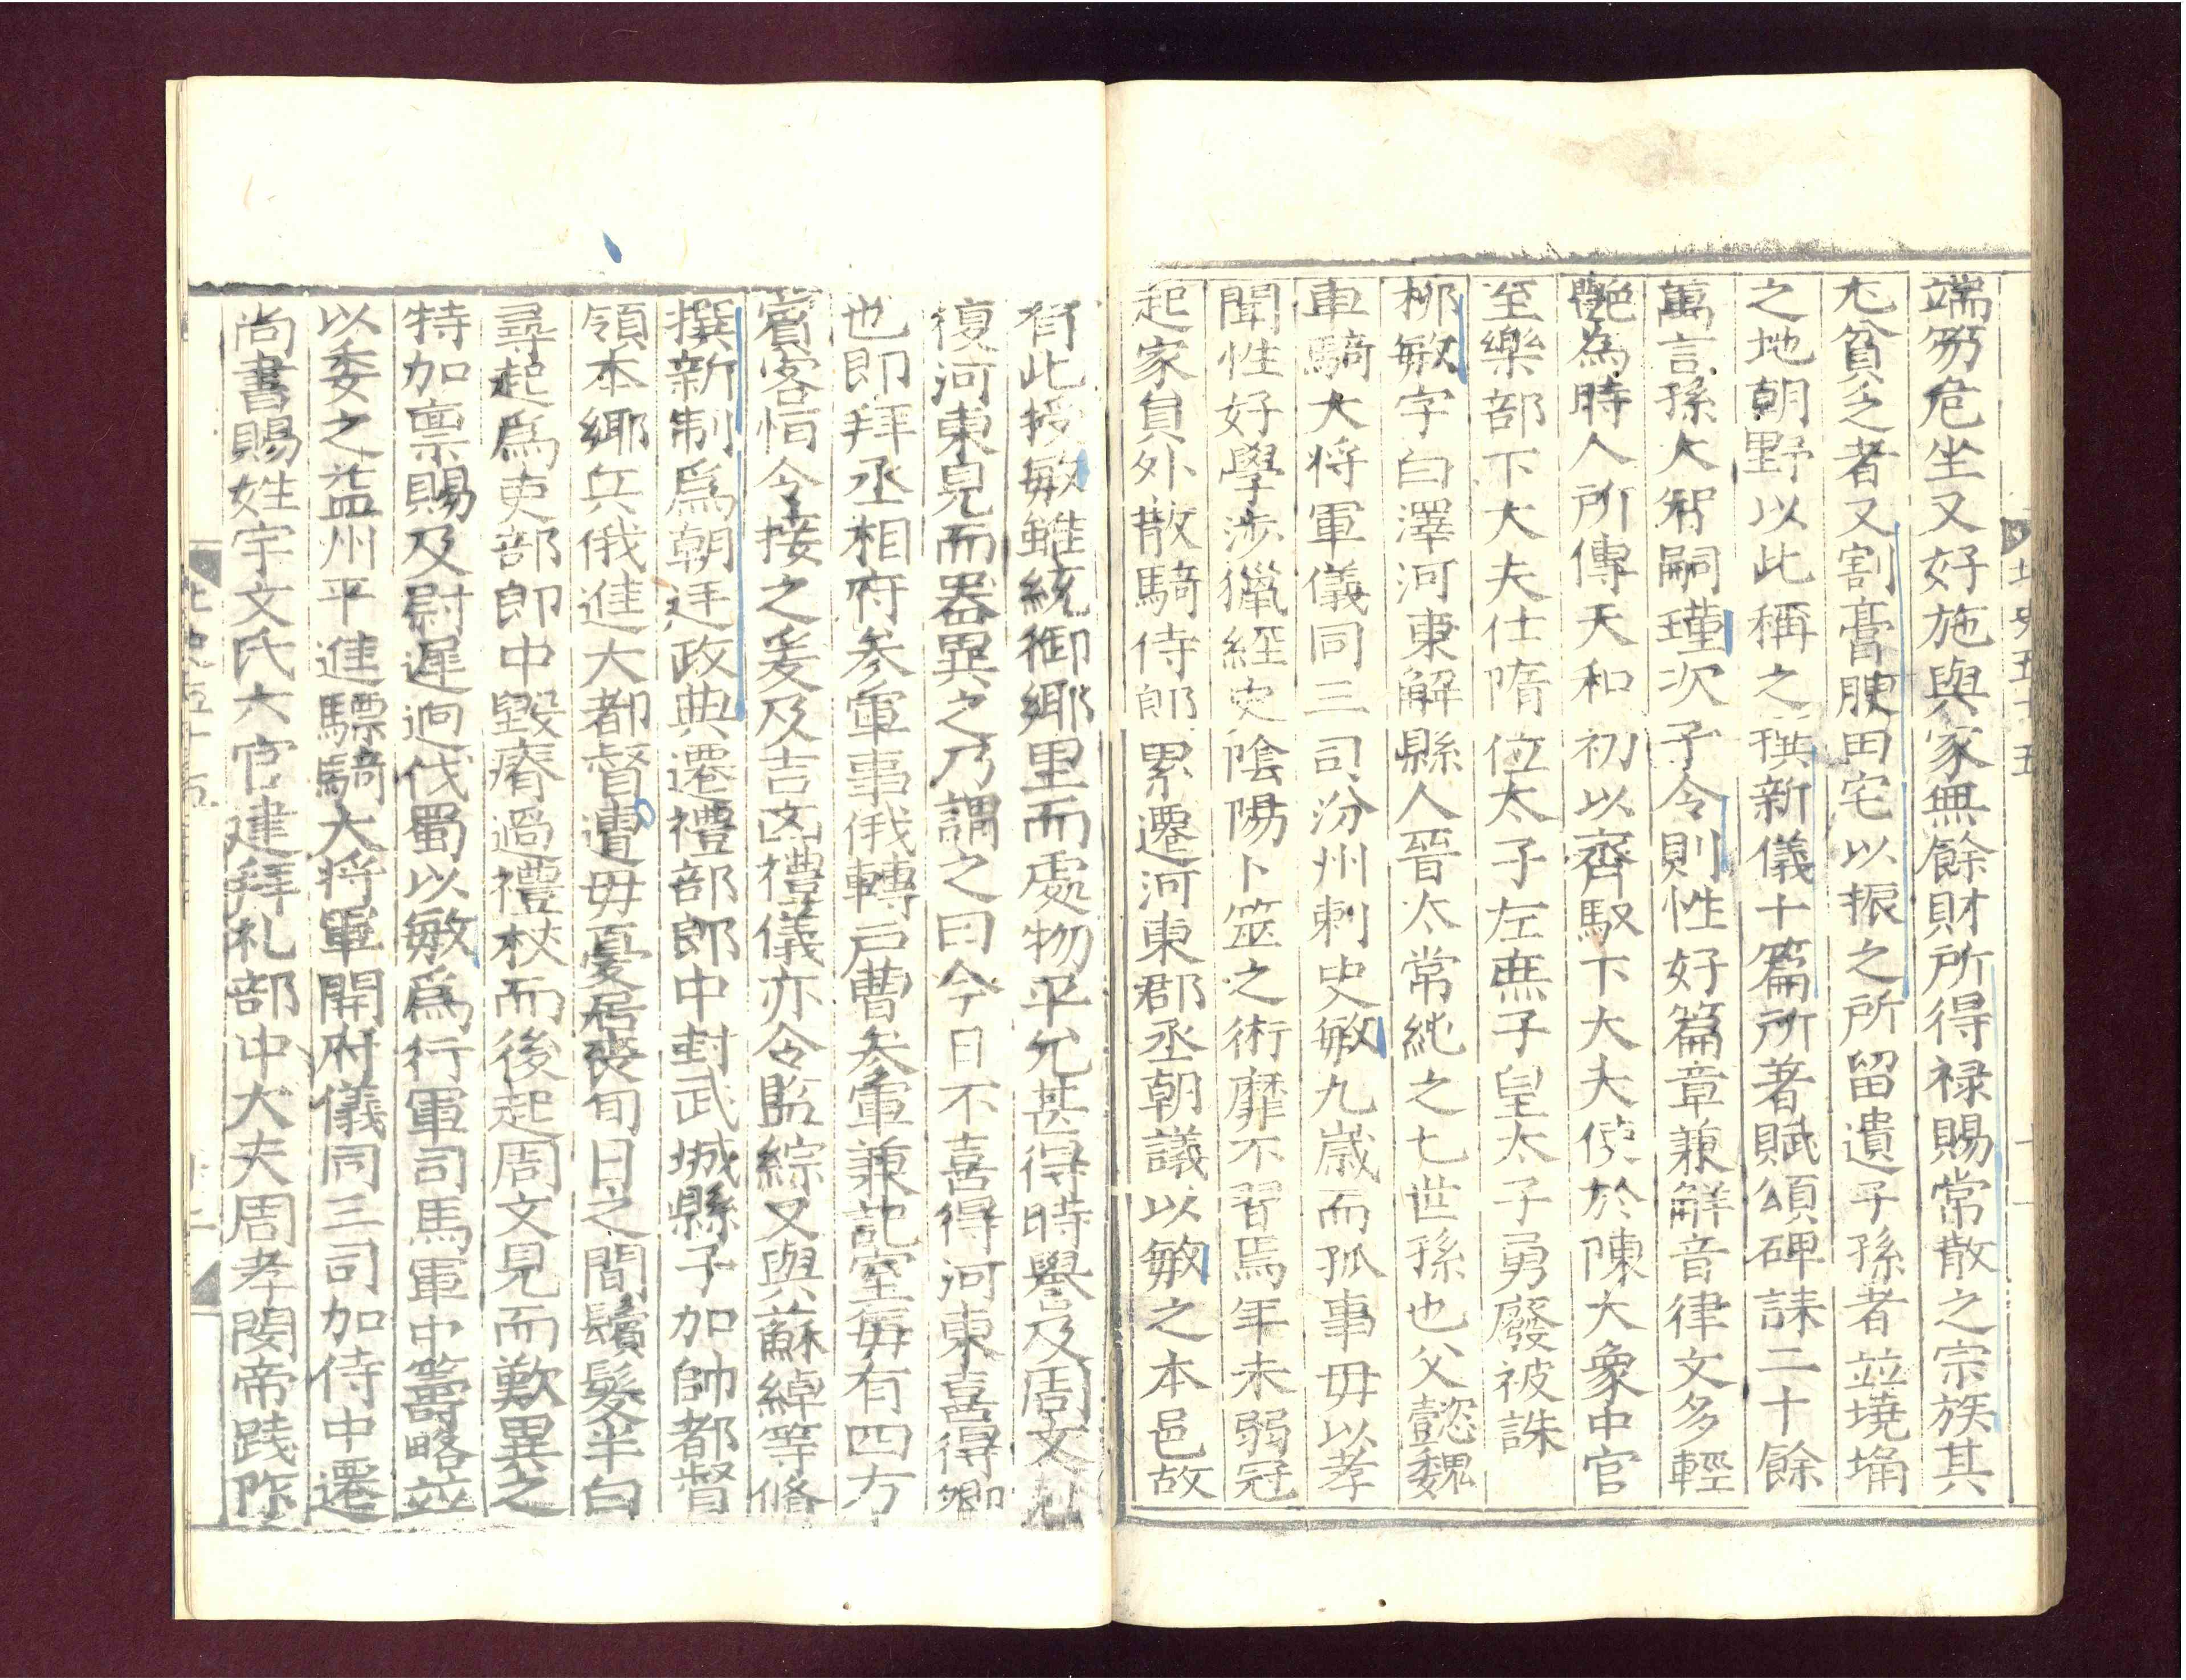 端笏危坐又好施與家無餘財所得禄賜常散之宗族其
尤貧乏者又割膏腴田宅以振之所留遺子孫者並墝埆
之地朝野以此稱之撰新儀十篇所著賦頌碑誄二十餘
萬言孫大智嗣瑾次子令則性好篇章兼解音律文多輕
艶為時人所傳天和初以齊馭下大夫使於陳大象中官
至樂部下大夫仕隋位太子左庶子皇太子勇廢被誅
栁敏字白澤河東解縣人晉太常純之七世孫也父懿魏
車騎大将軍儀同三司汾州刺史敏九歲而孤事毋以孝
聞性好學涉獵經史陰陽卜筮之術靡不習焉年未弱冠
起家貟外散騎侍郎累遷河東郡丞朝議以敏之本邑故
有此授敏雖統御鄉里而處物平允甚得時譽及周文尅
復河東見而器異之乃謂之曰今日不喜得河東喜得卿
也即拜丞相府参軍事俄轉户曹参軍兼記室每有四方
賓客恒令接之爰及吉凶禮儀亦令監綜又與蘇綽等脩
撰新制爲朝廷政典遷禮部郎中封武城縣子加帥都督
領本鄉兵俄進大都督遭毋憂居喪旬日之間鬚髮半白
尋起爲吏部郎中毀瘠過禮杖而後起周文見而歎異之
特加禀賜及尉遲迥伐蜀以敏爲行軍司馬軍中籌略並
以委之益州平進驃騎大将軍開府儀同三司加侍中遷
尚書賜姓宇文氏六官建拜礼部中大夫周孝閔帝踐阼
北史五十五
北史五十五